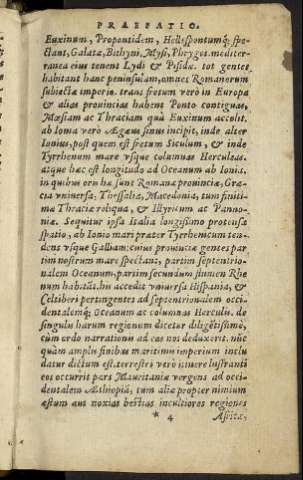 PRAEFATIO.
Euxinum, Propontidem, Hellespontumq́; spe-
ctant, Galatæ, Bithyni, Mysi, Phryges. mediter-
ranea eius tenent Lydi & Pisidæ. tot gentes
habitant hanc peninsulam, omnes Romanorum
subiectæ imperio. trans fretum verò in Europa
& alias prouincias habent Ponto contiguas,
Mœsiam ac Thraciam quà Euxinum accolit.
ab Ionia verò Ægæus sinus incipit, inde alter
Ionius, post quem est fretum Siculum, & inde
Tyrrhenum mare vsque columnas Herculeas.
atque hæc est longitudo ad Oceanum ab Ionia.
in quibus oris hæ sunt Romanæ prouinciæ, Græ-
cia vniuersa, Thessalia, Macedonia, tum finiti-
mæ Thraciæ reliqua, & Illyricum ac Panno-
niæ. Sequitur ipsa Italia longissimo protensa
spatio, ab Ionio mari præter Tyrrhenicum ten-
dens vsque Galliam: cuius prouinciæ gentes par-
tim nostrum mare spectant, partim septentrio-
nalem Oceanum, partim secundum flumen Rhe
num habitāt. his accedit vniuersa Hispania, &
Celtiberi pertingentes ad septentrionalem occi-
dentalemq́; Oceanum ac columnas Herculis. de
singulis harum regionum dicetur diligētissimè,
cùm ordo narrationū ad eas nos deduxerit. nūc
quàm amplis finibus maritimis imperium inclu
datur dictum est. terrestri verò itinere lustranti
eos occurrit pars Mauritaniæ vergens ad occi-
dentalem Æthiopiā, tum aliæ propter nimium
æstum aut noxias bestias incultiores regiones
* 4
Asiitæ,